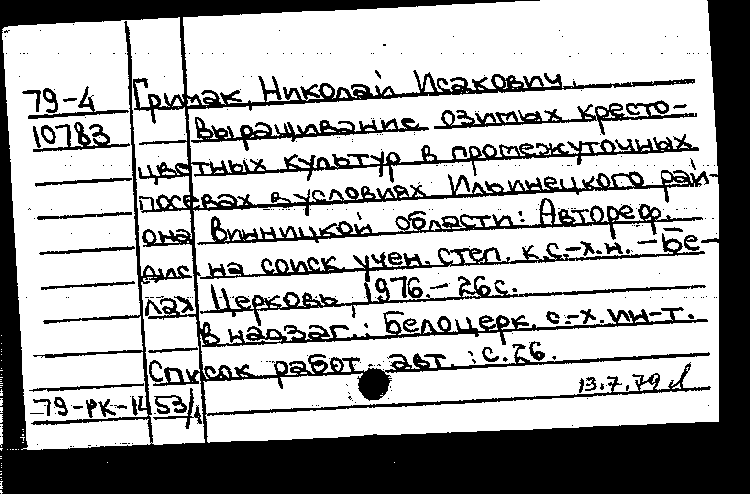 79-4 Гримак, Николай Исакович.
10783 Выращивание озимых кресто-
цветных культур в промежуточных
посевах в условиях Ильинецкого рай-
она Винницкой области: Автореф.
дис. на соиск. учен. степ. к.с.-х.н. - Бе-
лах Церковь, 1976. - 26 с.
В надзаг.: Белоцерк. с.-х. ин-т.
Список работ авт.: с. 26.
13.7.79
79-РК-1453/1